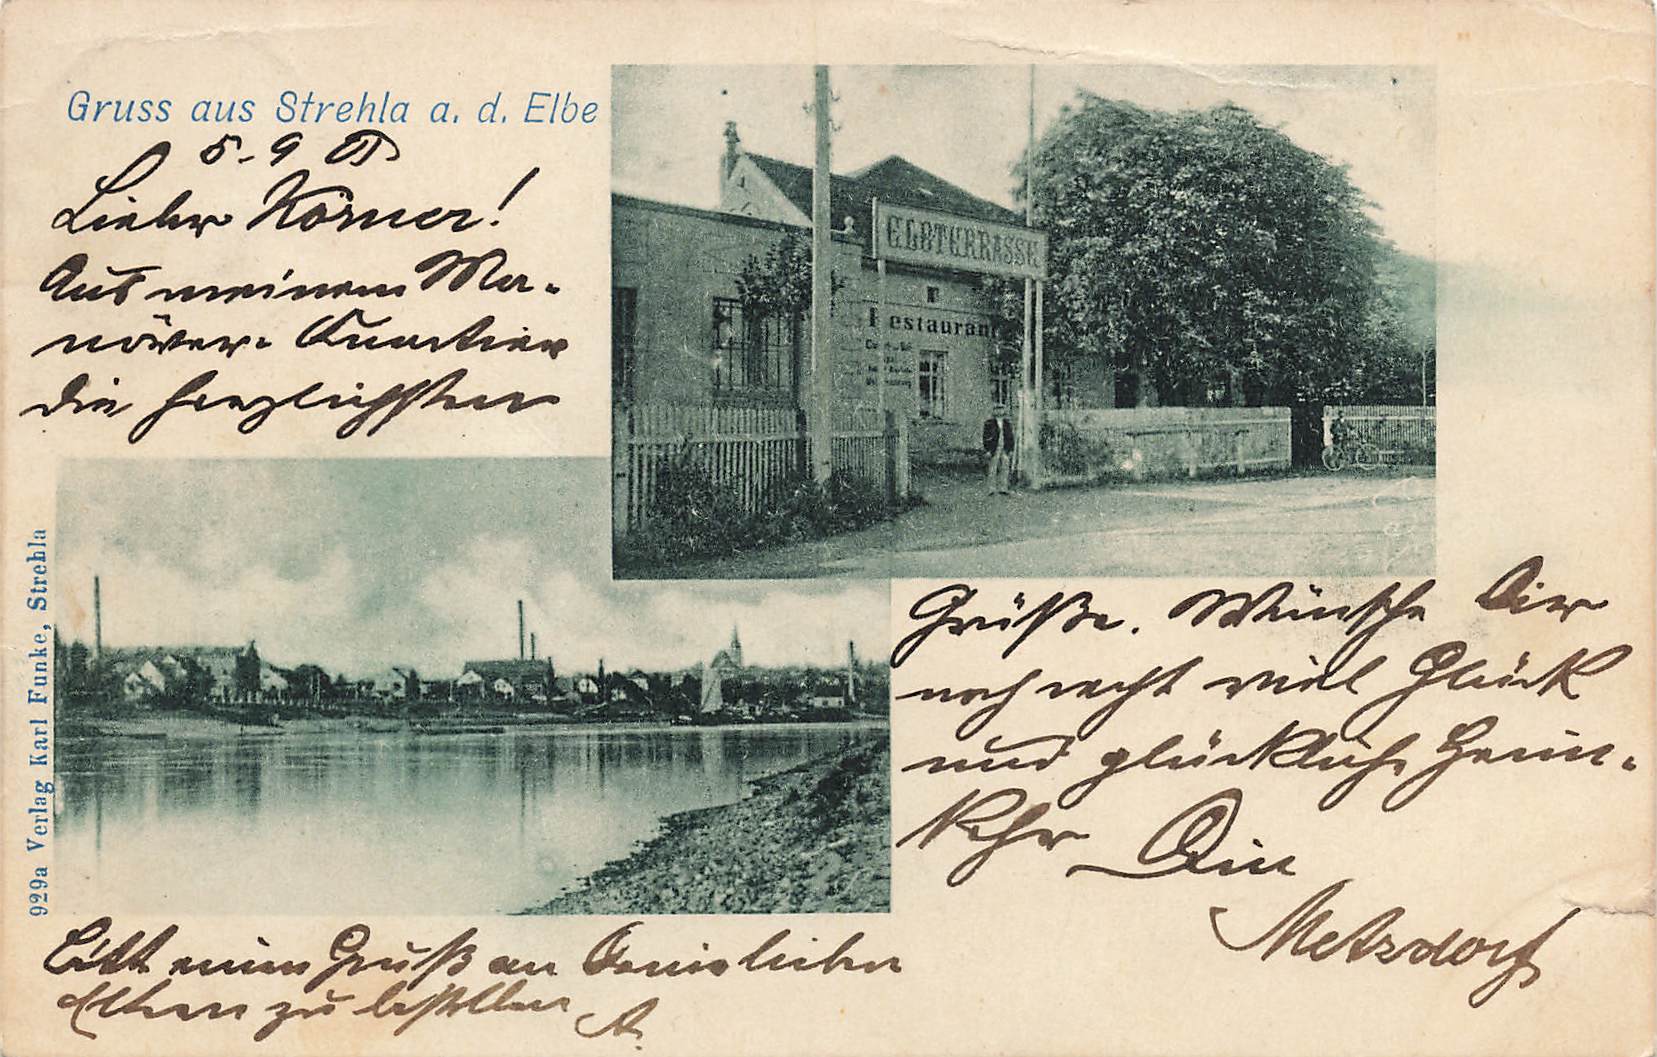 Gruss aus Strehla a. d. Elbe
5. 9.
Lieber Körner!
Aus meinem Ma-
növer- Quartier
die herzlichsten
ELBTERRASSE
Restaurant
Grüße. Wünsche Dir
noch recht viel Glück
und glückliche Heim-
kehr Dein
Metzdorf
Bitte einen Gruß an Deine lieben
Eltern zu bestellen
929a Verlag Karl Funke, Strehla